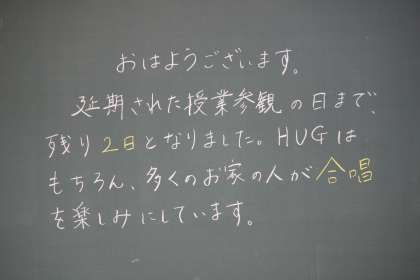 おはようございます。
延期された授業参観の日まで、
残り2日となりました。HUGは
もちろん、多くのお家の人が合唱
を楽しみにしています。